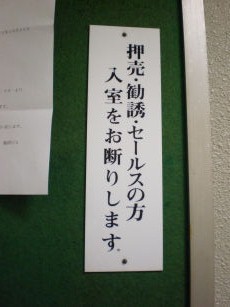 押売・勧誘・セールスの方
入室をお断りします。